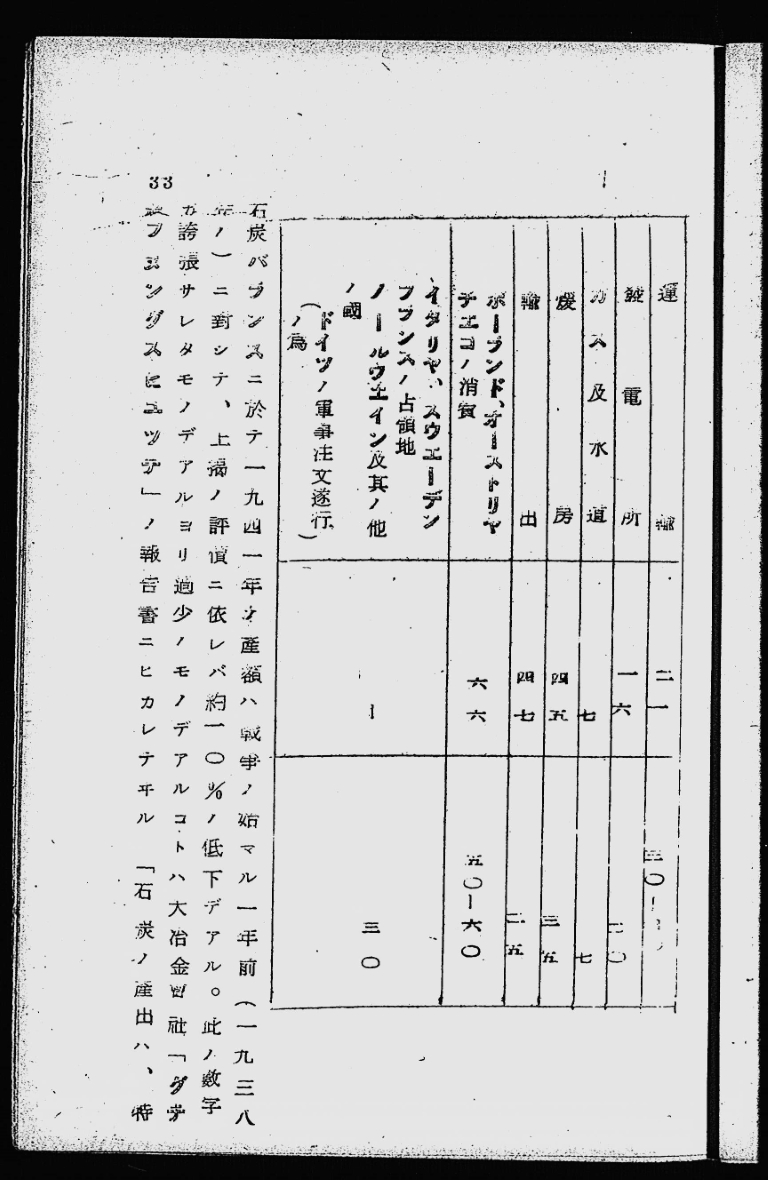 運輸 二一
發電所 一六 二〇
ガス及水道 七 七
煖房 四五 三五
輸出 四七 二五
ポーランド、オーストリヤ
チエコノ消費 六六 五〇—六〇
イタリヤ、スウエーデン
フランスノ占領地
ノールウエイン及其ノ他
ノ國 — 三〇
(ドイツノ軍事注文遂行
ノ爲)
石炭バランスニ於テ一九四一年ノ產額ハ戰爭ノ始マル一年前(一九三八
年ノ)ニ對シテ、上揭ノ評價ニ依レバ約一〇%ノ低下デアル。此ノ數字
ガ誇張サレタモノデアルヨリ過少ノモノデアルコトハ大冶金會社「グテ
フエングスヒユツテ」ノ報吿書ニヒカレテヰル「石炭ノ產出ハ、特
33